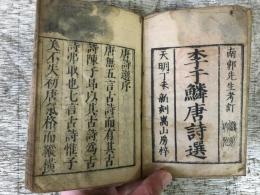 南郭先生考訂
李于鱗唐詩選
天明丁未新刻嵩山房梓
唐詩選序
唐無五言古詩而有其古
詩陳子昂以其古詩為古
詩弗取也七言古詩惟子
美不失初唐氣格而縱橫